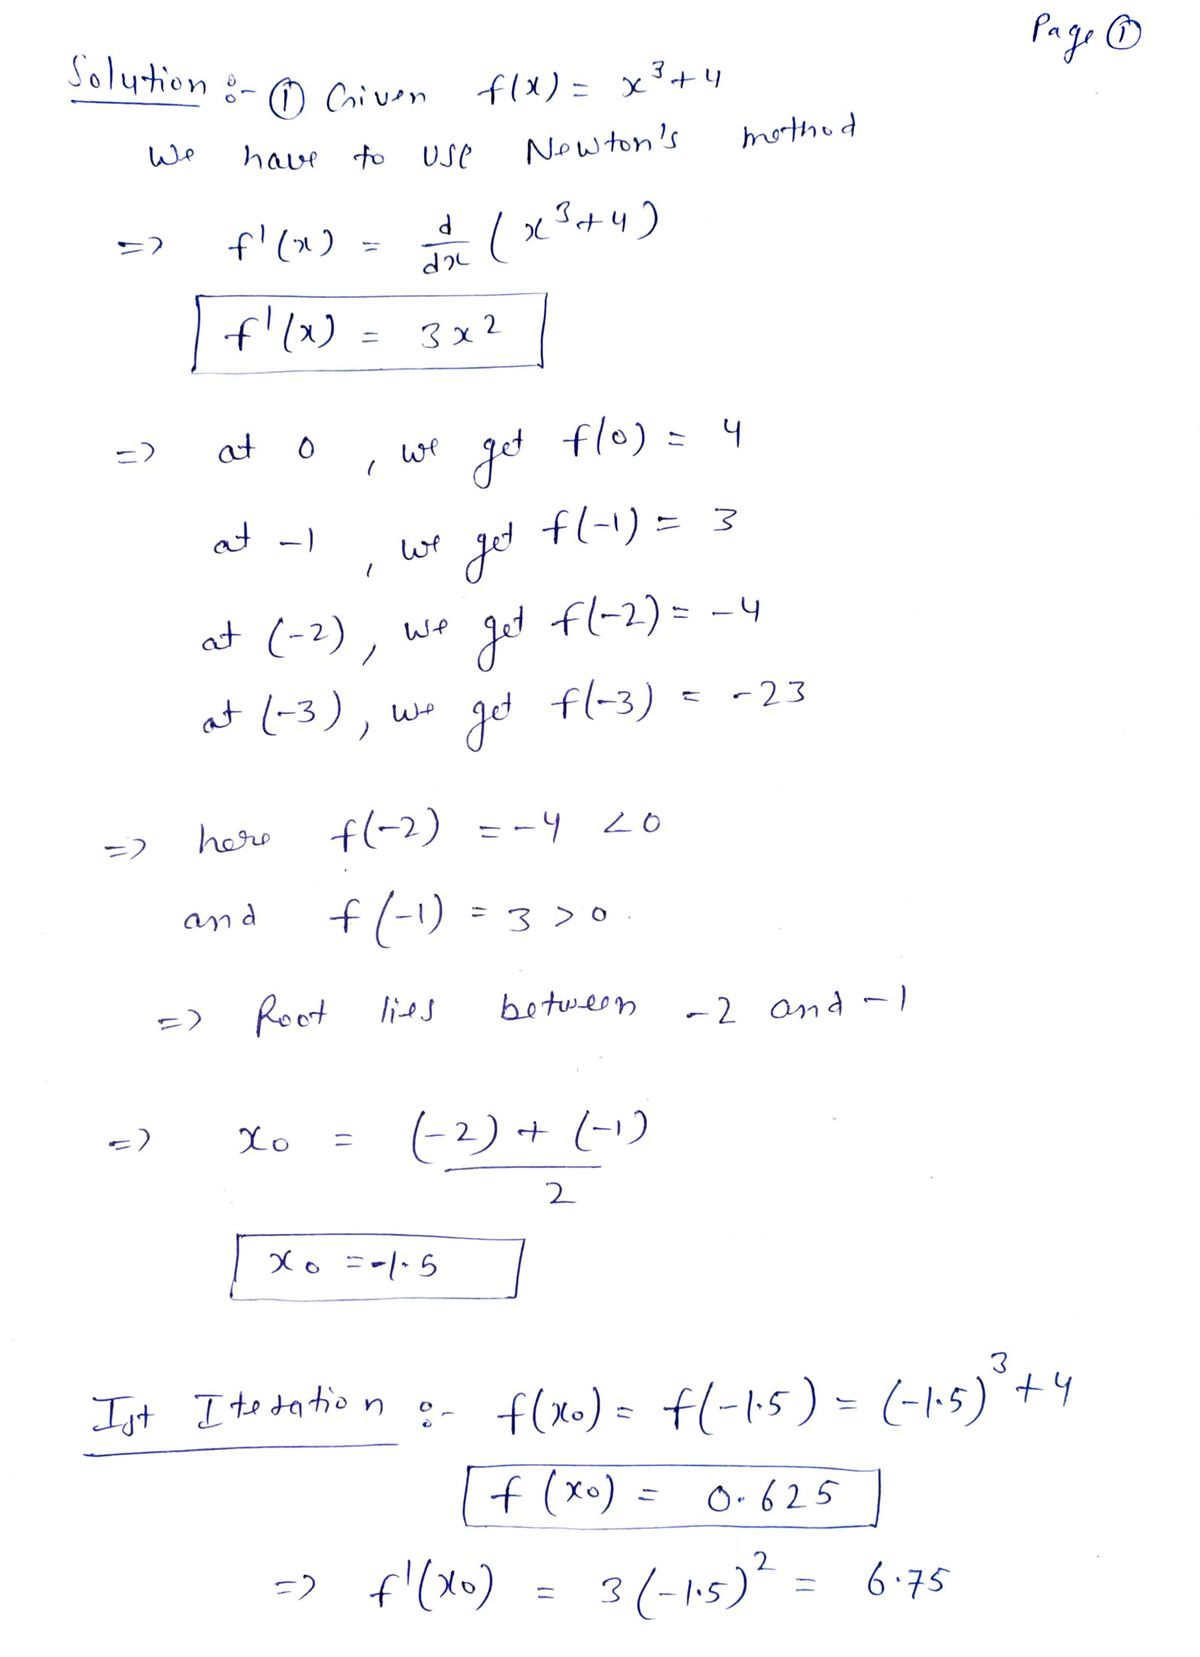 Page ①
Solution :- ① Given f(x) = x³+4
We have to use Newton's method
=> f'(x) = d/dx (x³+4)
f'(x) = 3x²
=> at 0, we get f(0) = 4
at -1, we get f(-1) = 3
at (-2), we get f(-2) = -4
at (-3), we get f(-3) = -23
=> here f(-2) = -4 <0
and f(-1) = 3 >0.
=> Root lies between -2 and -1
=> x₀ = (-2) + (-1) / 2
x₀ = -1.5
Ist Iteration :- f(x₀) = f(-1.5) = (-1.5)³+4
f(x₀) = 0.625
=> f'(x₀) = 3(-1.5)² = 6.75